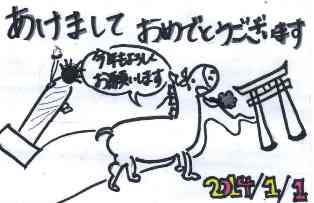 あけまして おめでとうございます
今年もよろしく
お願いします
2014/1/1